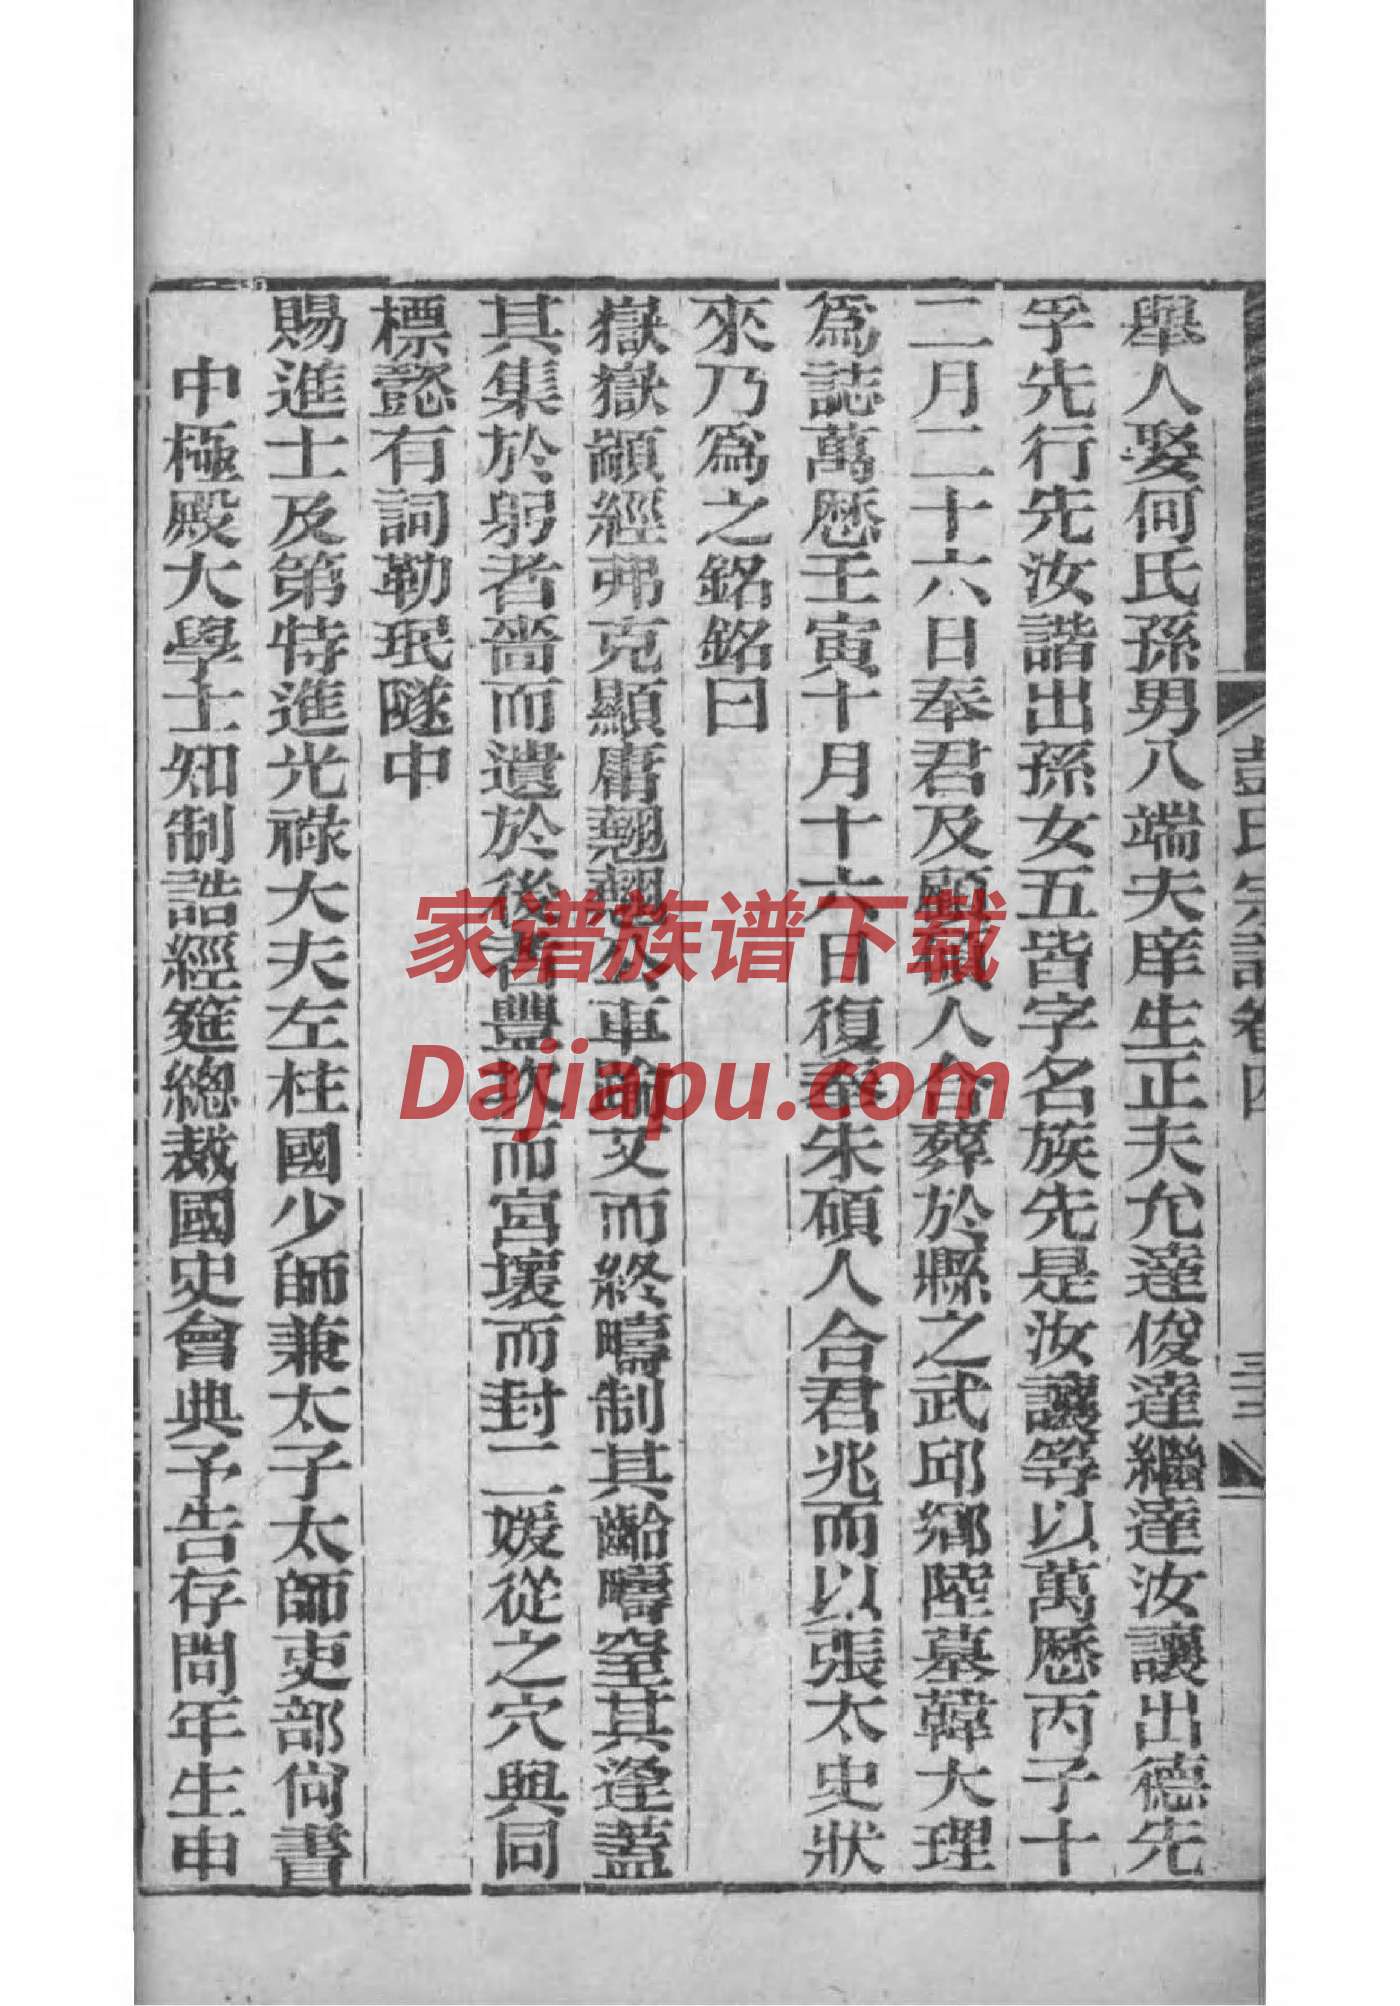 舉人娶何氏孫男八端夫庠生正夫允達俊達達繼達汝讓出德先
孚先行先汝諧出孫女五皆字名族先是汝讓等以萬曆丙子十
二月二十六日奉君及顧碩人合葬於縣之武邱鄉陸墓韓大理
爲誌萬曆壬寅十月十六日復奉朱碩人合君兆而以張太史狀
來乃爲之銘銘曰
嶽嶽顓經弗克顯庸翹翹公車踰艾而終疇制其齡疇窒其逢蓋
其集於躬者嗇而遺於後者豐故而宮壞而封二媛從之穴與同
標懿有詞勒珉隧中
賜進士及第特進光祿大夫左柱國少師兼太子太師吏部尙書
中極殿大學士知制誥經筵總裁國史會典予告存問年生申
彭氏宗譜卷四
三三
家谱族谱下载
Dajiapu.com